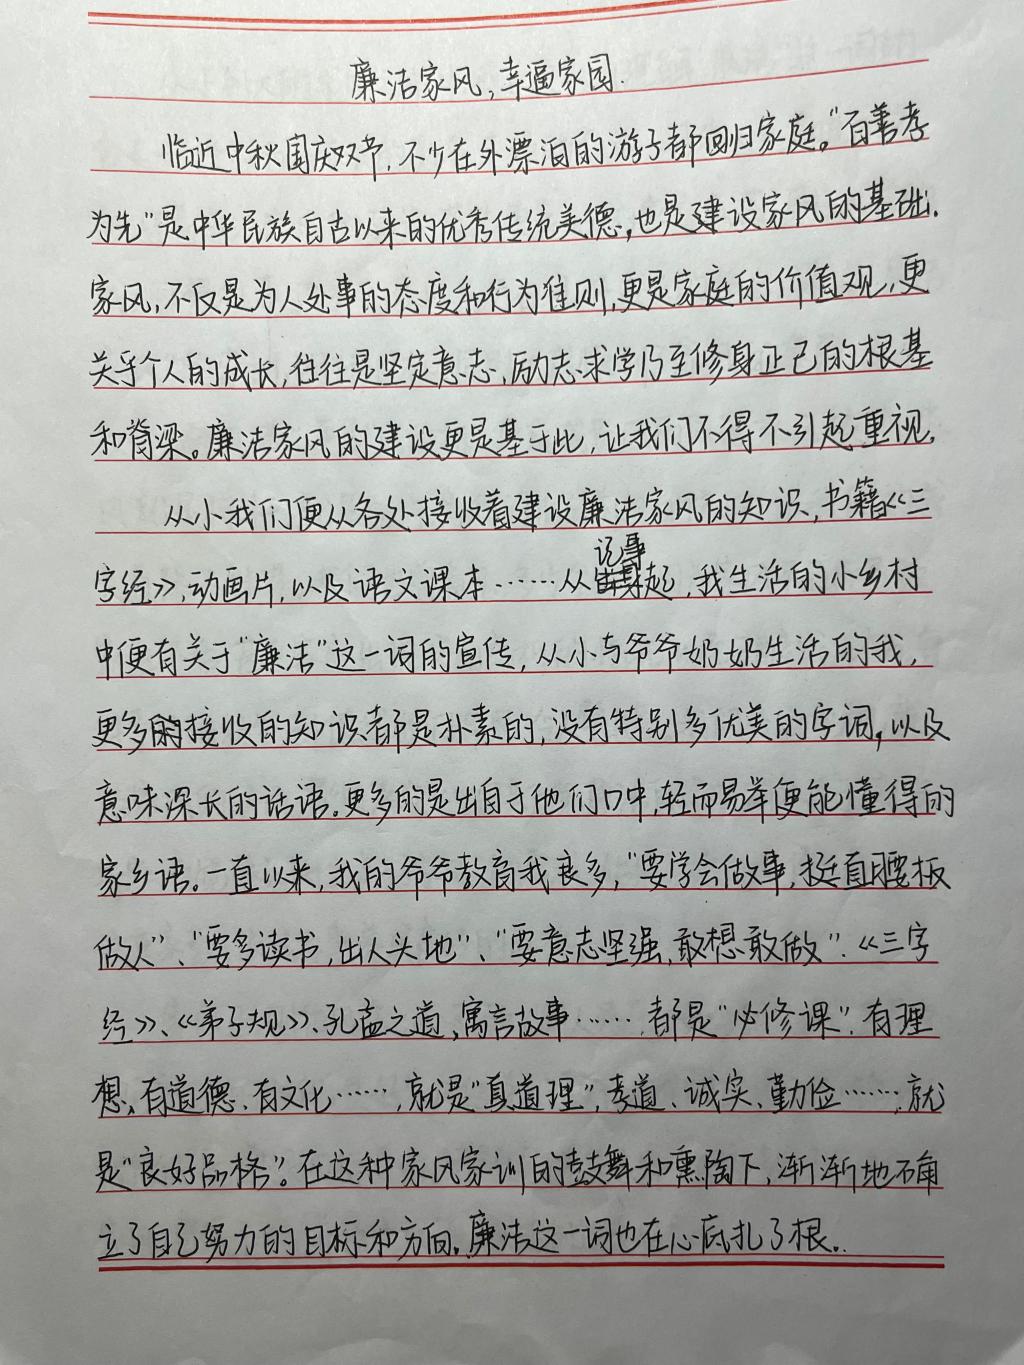 廉洁家风，幸逼家园.
临近中秋国庆双节，不少在外漂泊的游子都回归家庭。"百善孝
为先"是中华民族自古以来的优秀传统美德，也是建设家风的基础.
家风，不仅是为人处事的态度和行为准则，更是家庭的价值观，更
关乎个人的成长，往往是坚定意志，励志求学乃至修身正己的根基
和脊梁。廉洁家风的建设更是基于此，让我们不得不引起重视.
从小我们便从各处接收着建设廉洁家风的知识，书籍《三
字经》，动画片，以及语文课本……从记事起，我生活的小乡村
中便有关于"廉洁"这一词的宣传，从小与爷爷奶奶生活的我，
更多的接收的知识都是朴素的，没有特别多优美的字词，以及
意味深长的话语。更多的是出自于他们口中，轻而易举便能懂得的
家乡语。一直以来，我的爷爷教育我良多，"要学会做事，挺直腰板
做人"、"要多读书，出人头地"、"要意志坚强，敢想敢做".《三字
经》、《弟子规》、孔孟之道，寓言故事……，都是"必修课".有理
想、有道德、有文化……，就是"真道理"，孝道、诚实、勤俭……，就
是"良好品格"。在这种家风家训的鼓舞和熏陶下，渐渐地确
立了自己努力的目标和方向。廉洁这一词也在心底扎了根。